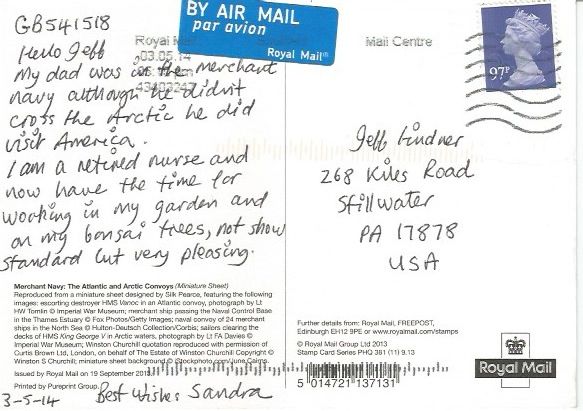 GB541518
BY AIR MAIL
par avion
Royal Mail®
Royal Mail
Mail Centre
03.05.14
97P
Hello Jeff
My dad was in the merchant
navy although he didn't
cross the Arctic he did
visit America.
I am a retired nurse and
now have the time for
working in my garden and
on my bonsai trees, not show
standard but very pleasing.
Merchant Navy: The Atlantic and Arctic Convoys (Miniature Sheet)
Reproduced from a miniature sheet designed by Silk Pearce, featuring the following
images: escorting destroyer HMS Vanoc in an Atlantic convoy, photograph by Lt
HW Tomlin © Imperial War Museum; merchant ship passing the Naval Control Base
in the Thames Estuary © Fox Photos/Getty Images; naval convoy of 24 merchant
ships in the North Sea © Hulton-Deutsch Collection/Corbis; sailors clearing the
decks of HMS King George V in Arctic waters, photograph by Lt FA Davies ©
Imperial War Museum; Winston Churchill quotation reproduced with permission of
Curtis Brown Ltd, London, on behalf of The Estate of Winston Churchill Copyright ©
Winston S Churchill; miniature sheet background © iStockphoto.com/June Cairns.
Royal Mail issued on 19 September 2013
Printed by Pureprint Group.
3-5-14 Best Wishes Sandra
Jeff Lindner
268 Kiles Road
Stillwater
PA 17878
USA
Further details from: Royal Mail, FREEPOST,
Edinburgh EH12 9PE or www.royalmail.com/stamps
© Royal Mail Group Ltd 2013
Stamp Card Series PHQ 381 (11) 9.13
5 014721 137131
Royal Mail